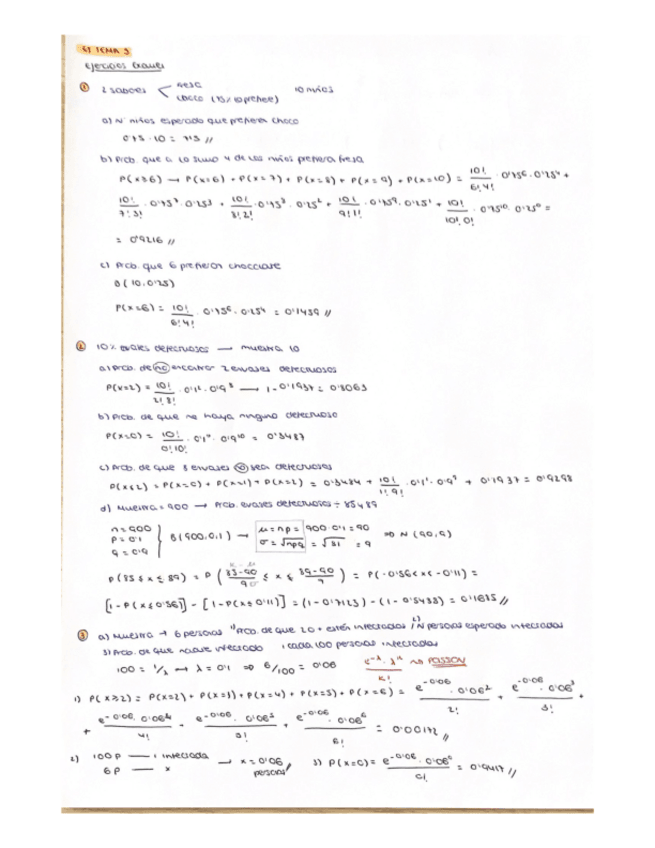 EJ TEMA 3
Ejercicios Examen
① 2 sabores < fresa
choco (75% prefiere)
10 niños
a) N° niños esperado que prefiera choco
0'75 · 10 = 7'5 //
b) Prob. que a lo sumo 4 de los niños prefiera fresa
P(x≥6) → P(x=6) + P(x=7) + P(x=8) + P(x=9) + P(x=10) = 10!/6!4! · 0'75⁶ · 0'25⁴ +
10!/7!3! · 0'75⁷ · 0'25³ + 10!/8!2! · 0'75⁸ · 0'25² + 10!/9!1! · 0'75⁹ · 0'25¹ + 10!/10!0! · 0'75¹⁰ · 0'25⁰ =
= 0'9216 //
c) Prob. que 6 prefieran chocolate
B(10, 0'75)
P(x=6) = 10!/6!4! · 0'75⁶ · 0'25⁴ = 0'1459 //
② 10% envases defectuosos → muestra 10
a) Prob. de no encontrar 2 envases defectuosos
P(x=2) = 10!/2!8! · 0'1² · 0'9⁸ → 1 - 0'1937 = 0'8063
b) Prob. de que no haya ninguno defectuoso
P(x=0) = 10!/0!10! · 0'1⁰ · 0'9¹⁰ = 0'3487
c) Prob. de que 8 envases no sean defectuosos
P(x≤2) = P(x=0) + P(x=1) + P(x=2) = 0'3484 + 10!/1!9! · 0'1¹ · 0'9⁹ + 0'1937 = 0'9298
d) Muestra = 900 → Prob. envases defectuosos ÷ 85 y 89
n = 900
p = 0'1
q = 0'9
B(900, 0,1) → μ = np = 900 · 0'1 = 90
σ = √npq = √81 = 9 ⇒ N(90, 9)
P(85 ≤ x ≤ 89) = P(85-90/9 ≤ x ≤ 89-90/9) = P(-0'56 < x < -0'11) =
[1-P(x≤0'56)] - [1-P(x≤0'11)] = (1-0'7123) - (1-0'5438) = 0'1685 //
③ a) Muestra → 6 personas 1) Prob. de que 2 o + estén infectados / 2) N° personas esperado infectados
3) Prob. de que nadie infectado 1 cada 100 personas infectados
100 = 1/λ → λ = 0'1 ⇒ 6/100 = 0'06 e^-λ · λ^k / k! → POISSON
1) P(x≥2) = P(x=2) + P(x=3) + P(x=4) + P(x=5) + P(x=6) = e^-0'06 · 0'06² / 2! + e^-0'06 · 0'06³ / 3! +
+ e^-0'06 · 0'06⁴ / 4! + e^-0'06 · 0'06⁵ / 5! + e^-0'06 · 0'06⁶ / 6! = 0'00172 //
2) 100 P — 1 infectada
6 P — x
→ x = 0'06 personas //
3) P(x=0) = e^-0'06 · 0'06⁰ / 0! = 0'9417 //